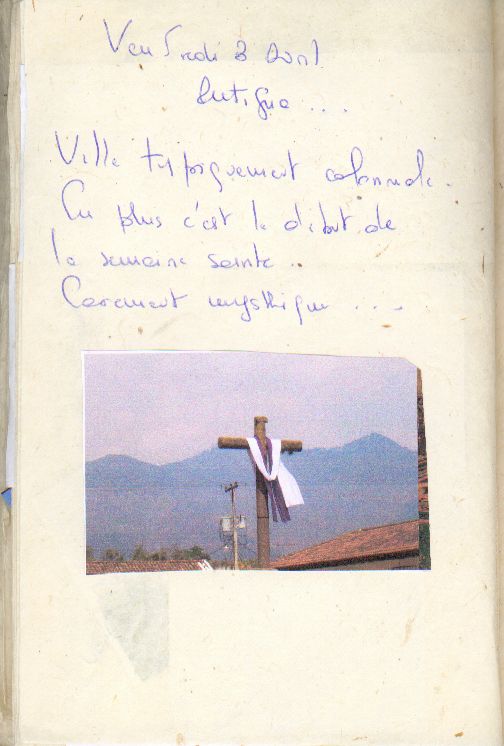 Vendredi 3 Avril
Antigua ...
Ville typiquement coloniale.
En plus c'est le début de
la semaine sainte..
Carément mysthique ....